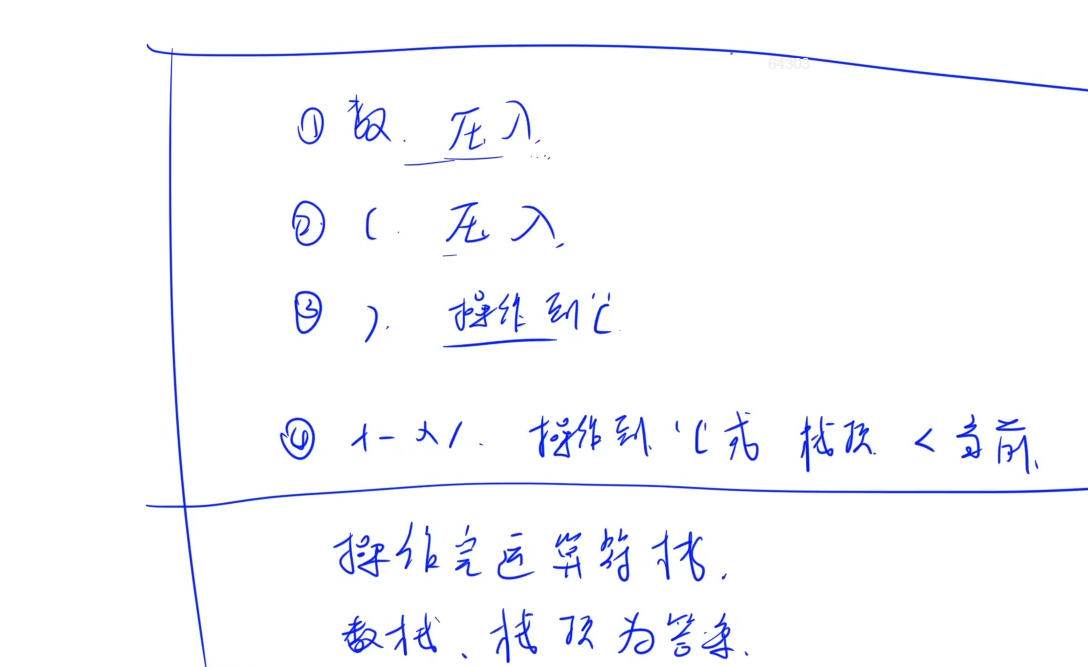 64303
① 数. 压入.
② (. 压入.
③ ). 操作到'(
④ + - × /. 操作到'(或 栈顶 < 当前.
操作完运算符栈.
数栈、栈顶为答案.